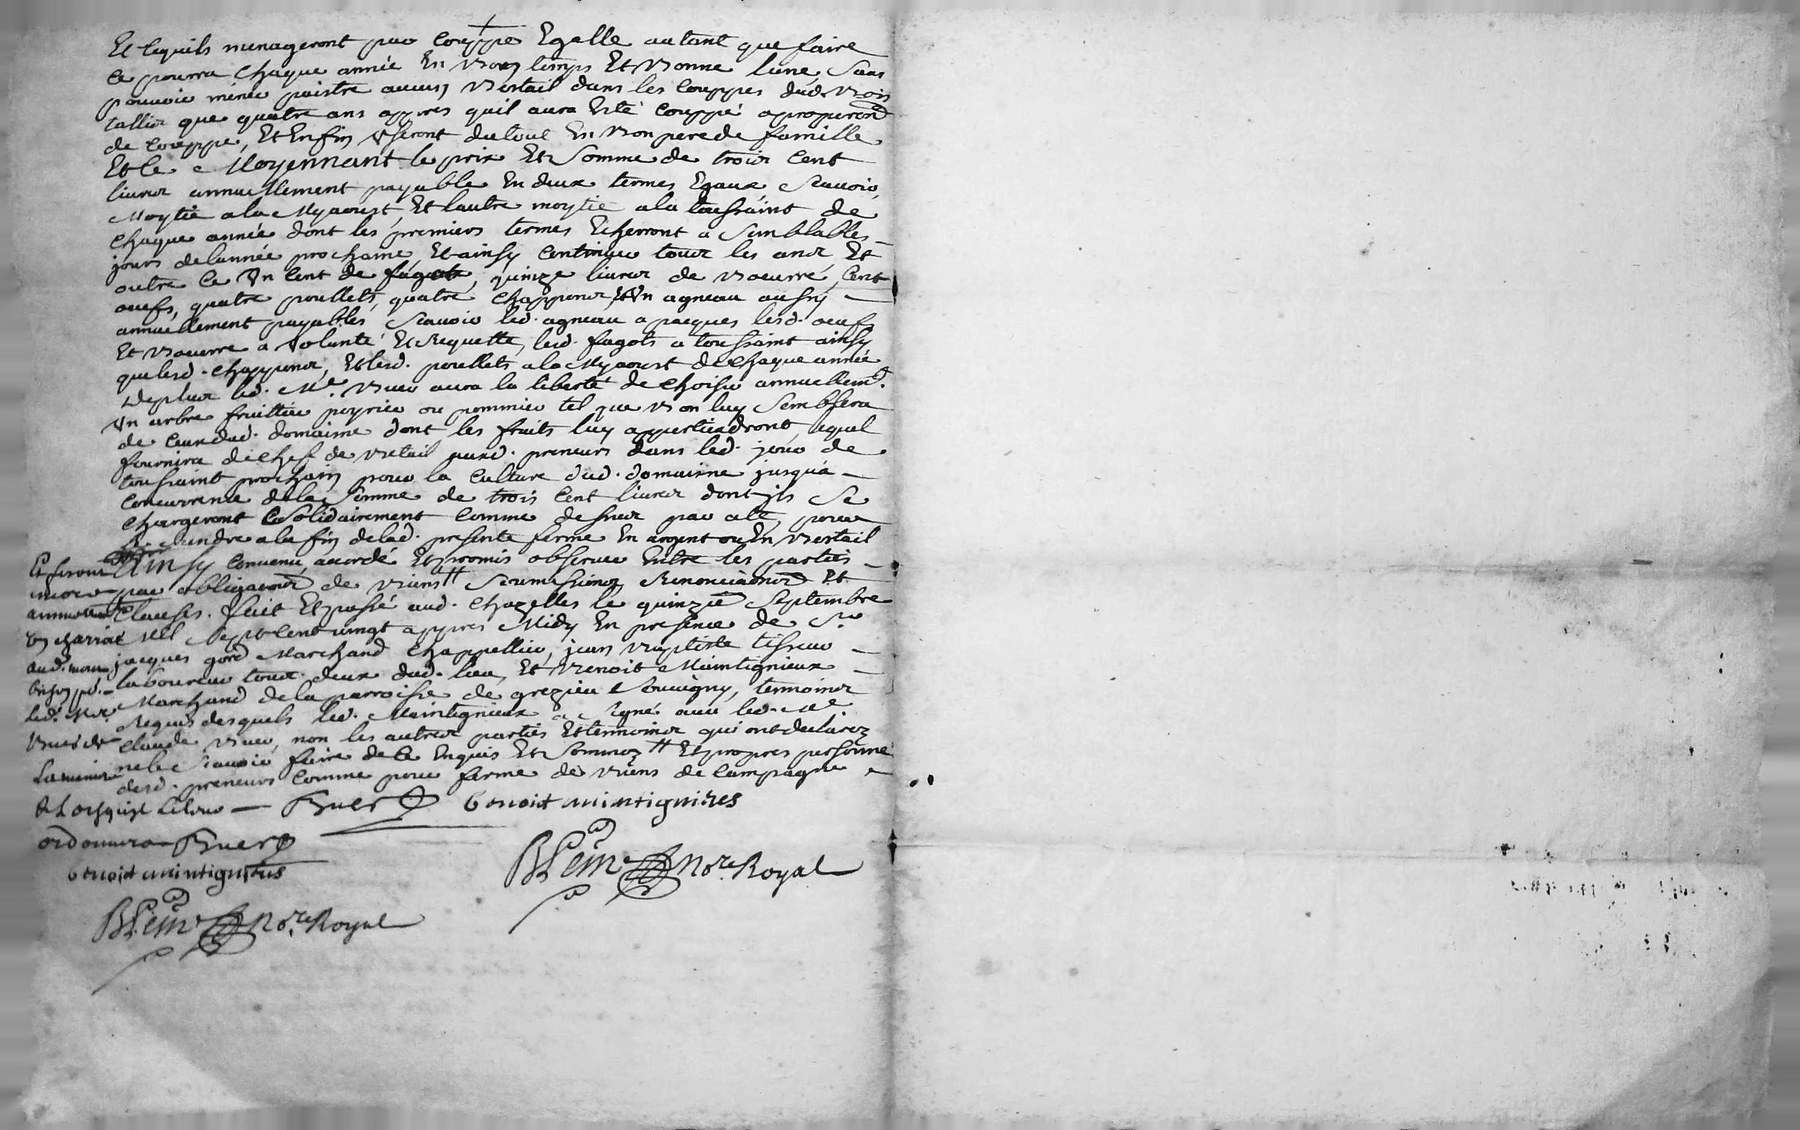 Et lequils menageront par couppe Egalle autant que faire
ce pourra chaque année En bon temps Et bonne lune, sans
pouvoir mener paistre aucun bestail dans les couppes dud. bois
tallier que quatre ans appres quil aura Esté couppé
de couppe, Et Enfin useront du tout En bon pere de famille
Et ce Moyennant le prix Et somme de trois cent
livres annuellement payable En deux termes Egaux, scauoir
Moytié ala Myaoust, Et lautre moytié ala toussaint de
chaque année dont les premiers termes Echerront a semblables
jours de lannée prochaine, Et ainsy continuer tous les ans, Et
outre ce un cent de fagots, quinze livres de beurre, cent
oeufs, quatre poullets, quatre chappons Et un agneau aussy
annuellement payables, scauoir led. agneau a pacques lesd. oeufs
Et beurre a volunté Et Requette, lesd. fagots a toussaint ainsy
que lesd. chappons, Et lesd. poullets ala Myaoust de chaque année
de plus led. Me. buer aura la liberté de choisir annuellemt.
un arbre fruittier poyrier ou pommier tel que bon luy semblera
de ceux dud. domaine dont les fruits luy appartiendront, lequel
fournira de chef de bestail auxd. preneurs dans led. jour de
toussaint prochain pour la culture dud. domaine jusqua
concurrence de la somme de trois cent livres dont jls se
chargeront solidairement comme dessus par acte, pour
rendre a la fin de lad. presente ferme En argent ou En bestail
Ainsy convenu, accordé Et promis observer Entre les parties
par obligaons de biens # soumissions, Renonciaons Et
clauses. fait Et passé aud. chazelles le quinzie septembre
Mil sept cent vingt appres Midy En presence de Sr
jacques gord Marchand chappellier, jean baptiste tisseur
laboureur tous deux dud. lieu, Et benoit Maintignieux
Marchand de la parroisse de grezieu Souvigny, temoins
Requis desquels led. Maintignieux a signé avec led. Me
claude buer, non les autres parties Et temoins qui ont declarez
ne le scauoir faire de ce Enquis Et sommez # Et propres personne
desd. preneurs comme pour ferme de biens de campagne
Buer benoist maintignieres
No.re Royal
Et feront
annuellemt
un charroi
aud.
led. Me.
buer de
La
ordonnera Buer
benoist maintignieres
No.re Royal